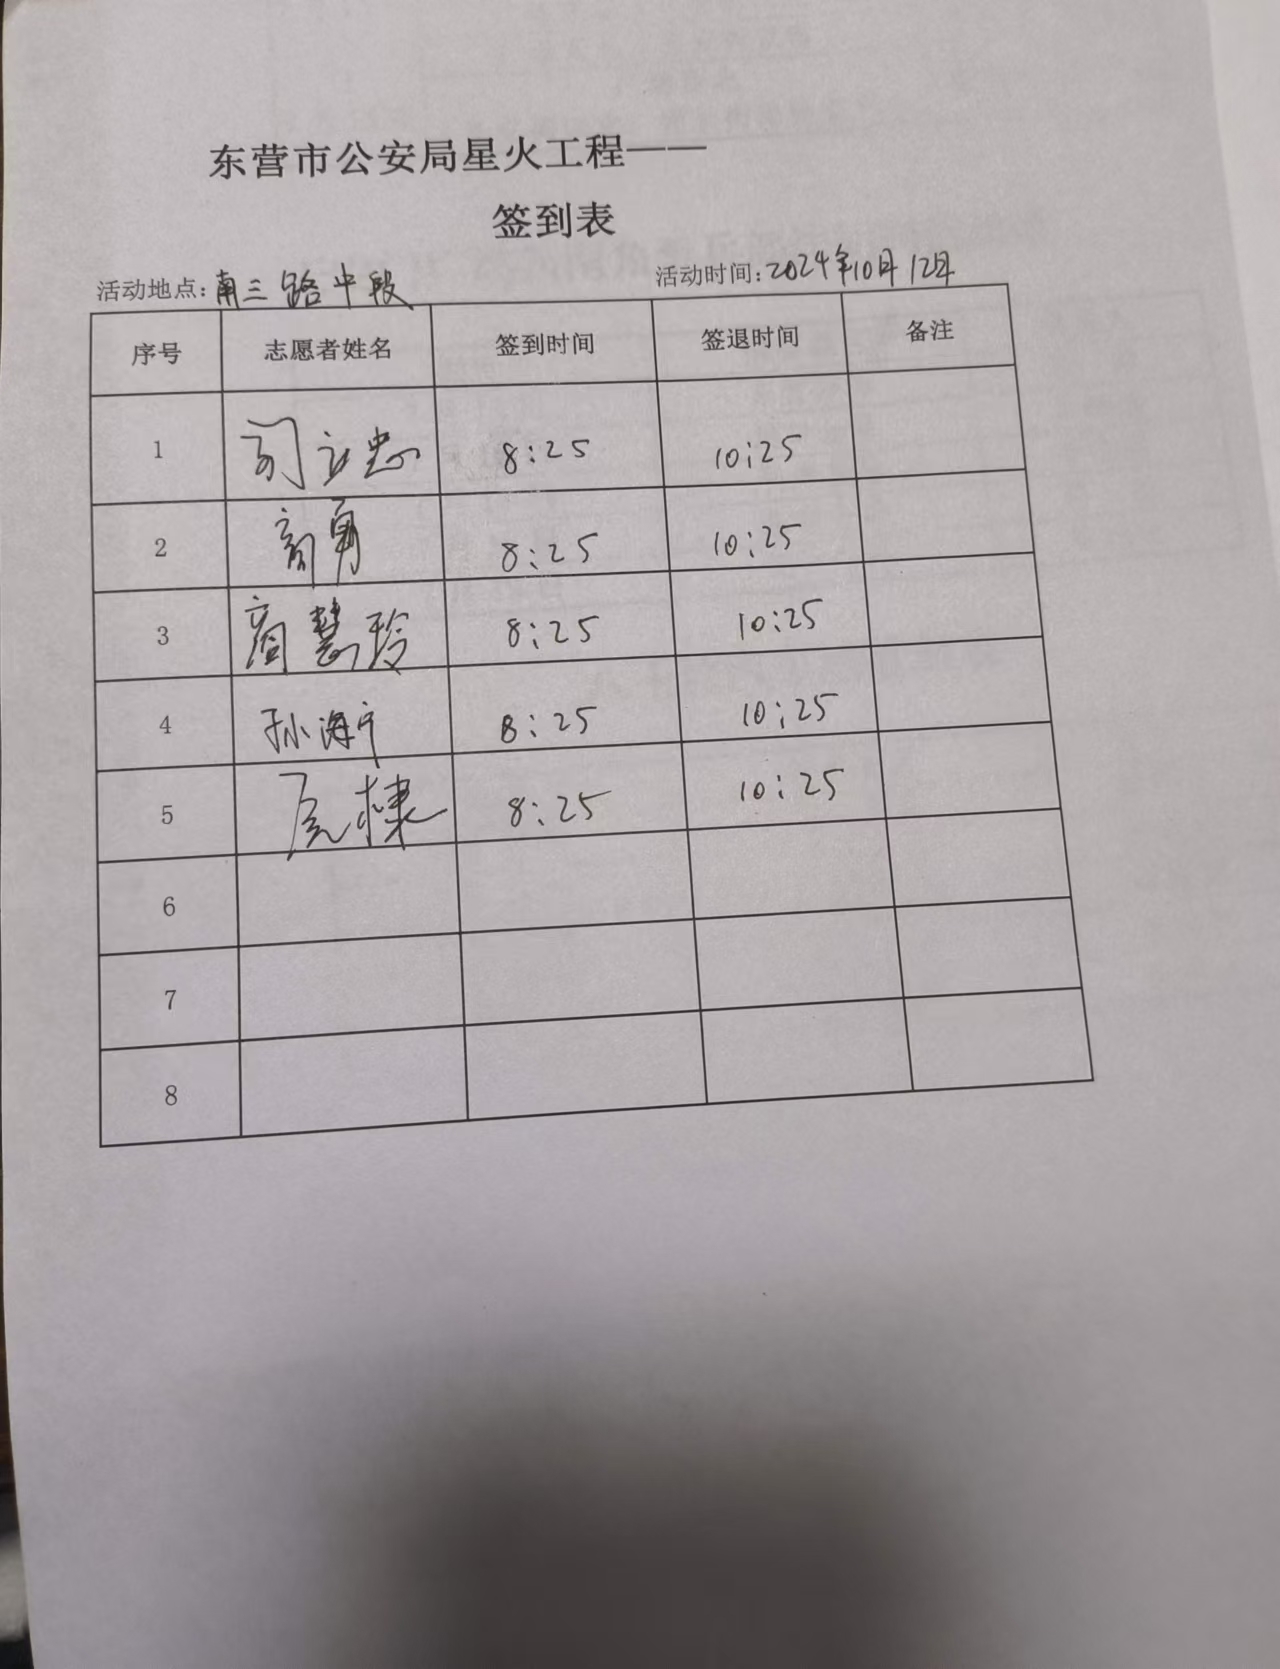 东营市公安局星火工程——
签到表
活动地点：南三路中段 活动时间：2024年10月12日
序号 志愿者姓名 签到时间 签退时间 备注
1 8:25 10:25
2 8:25 10:25
3 慧玲 8:25 10:25
4 孙海宁 8:25 10:25
5 8:25 10:25
6
7
8